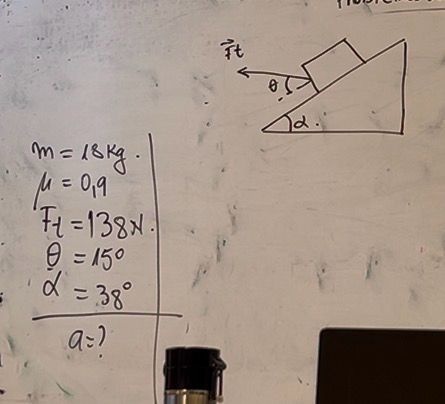 F⃗t
θ
α.
m = 18kg.
μ = 0,9
Ft = 138N.
θ = 15°
α = 38°
a = ?